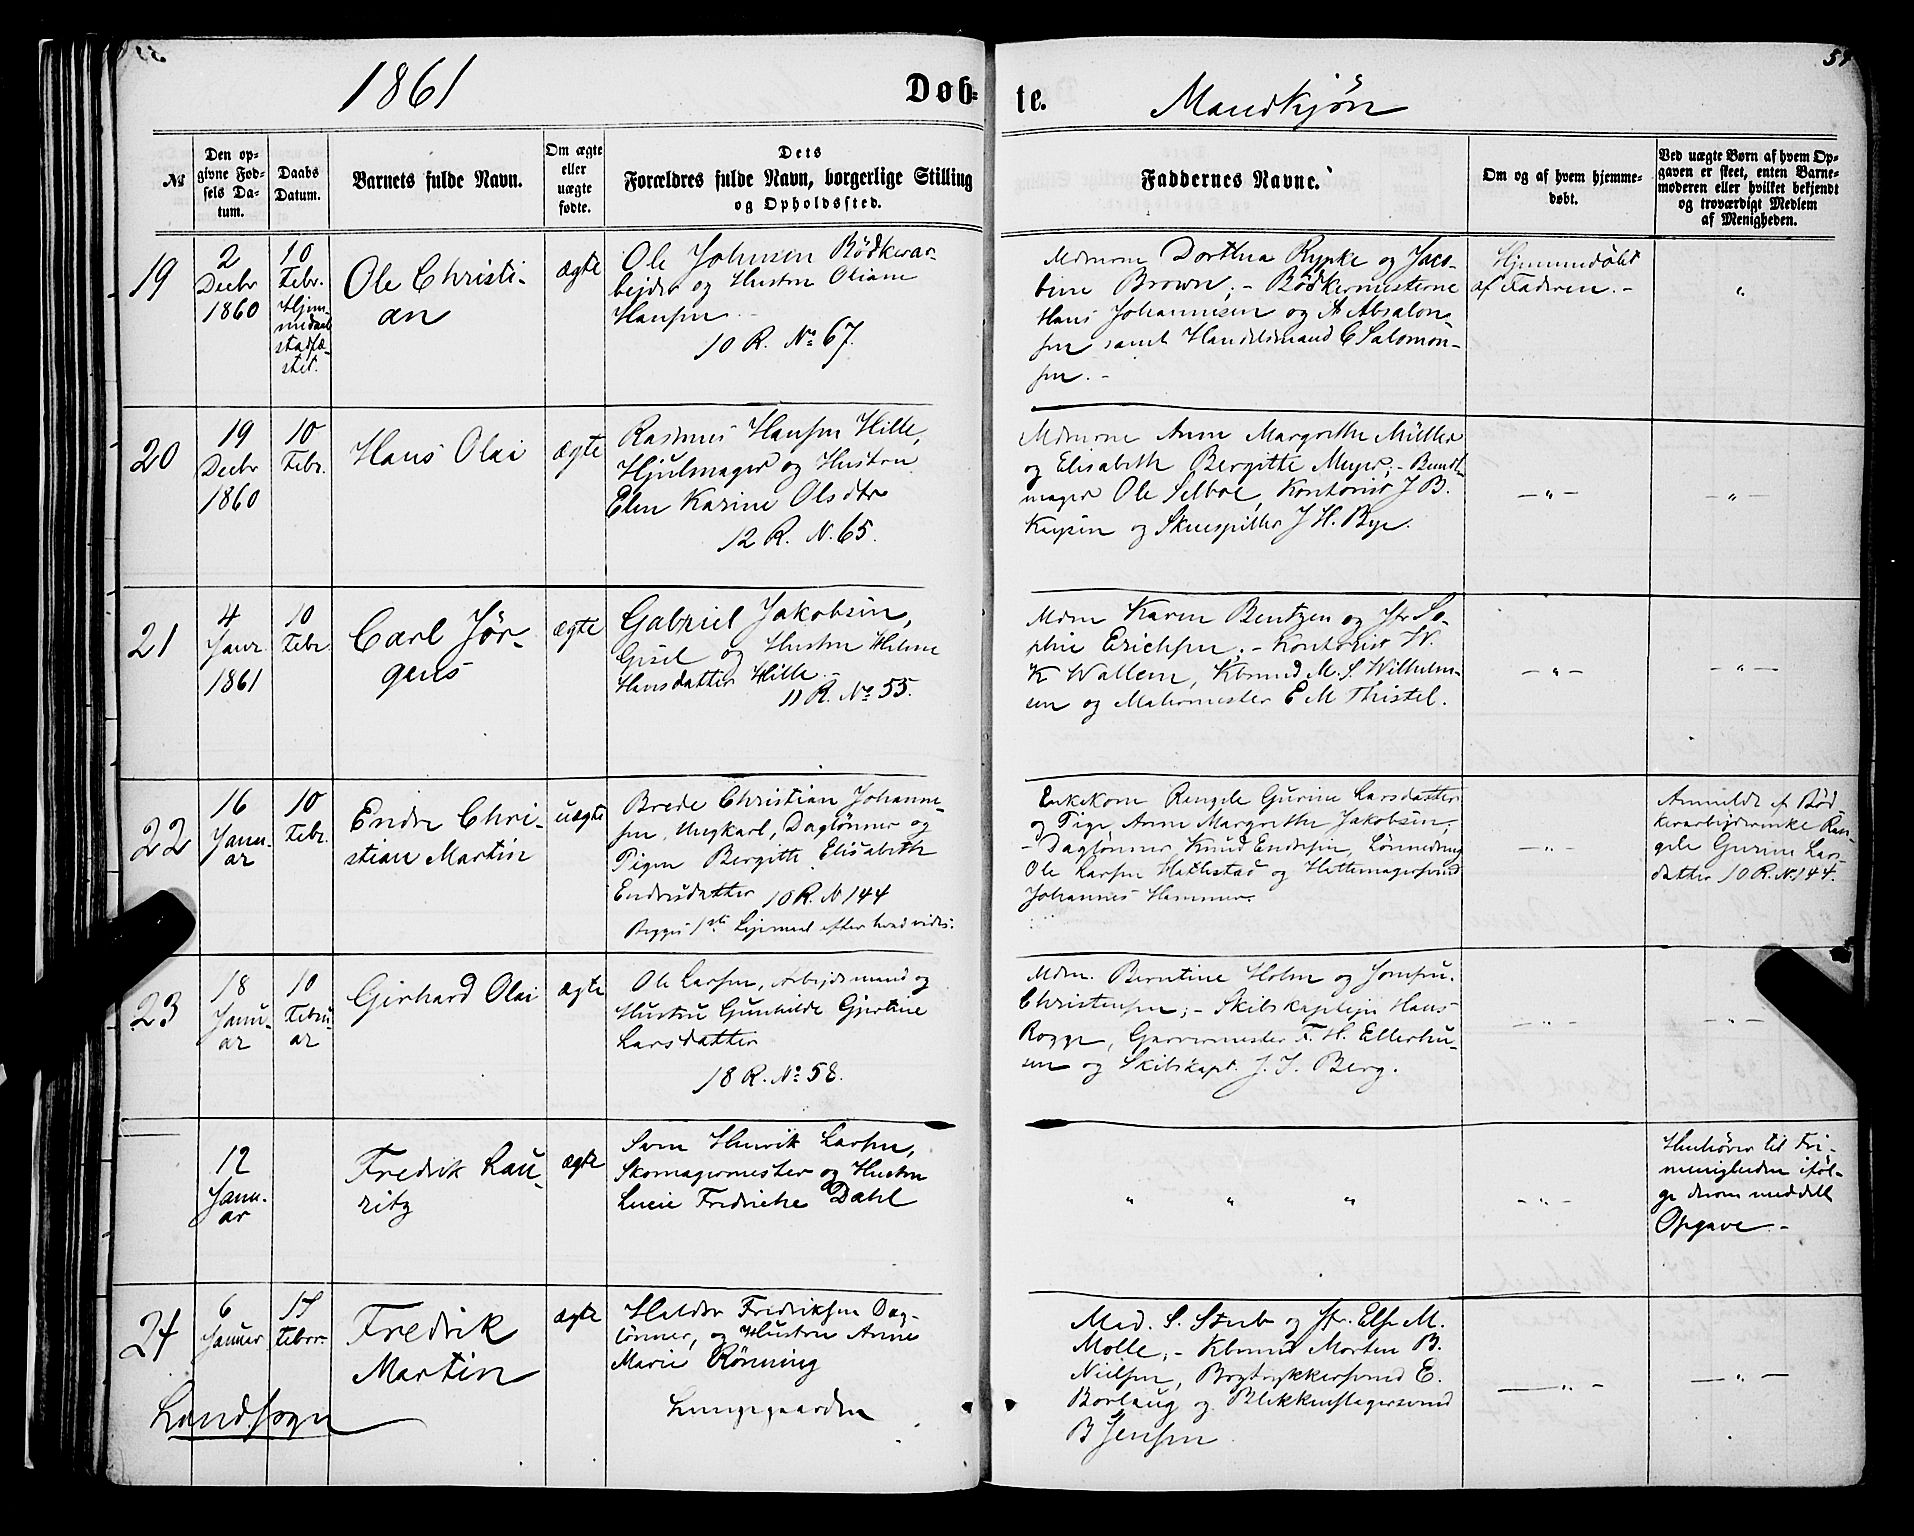 1861
Døb-
te.
Mandkjøn
№
Den op-
givne Fød-
sels Da-
tum.
Daabs
Datum.
Barnets fulde Navn.
Om ægte
eller
uægte
fødte.
Dets
Forældres fulde Navn, borgerlige Stilling
og Opholdssted.
Faddernes Navne.
Om og af hvem hjemme-
døbt.
Ved uægte Børn af hvem Op-
gaven er skeet, enten Barne-
moderen eller hvilket bekjendt
og troværdigt Medlem
af Menigheden.
19
2
Decbr
1860
10
Febr.
Hjem-
medaab
stadfæ-
stet.
Ole Christi-
an
ægte
Ole Johnsen Bødkerar-
bejder og Hustru Oliane
Hansen
10 R. No 67.
Mdmerne Dorthea Rypke og Jaco-
bine Brown; - Bødkermesterne
Hans Johannesen og A Absalon-
sen samt Handelsmand C Salomon-
sen. -
Hjemmedøbt
af Faderen. -
"
20
19
Decbr
1860
10
Febr.
Hans Olai
ægte
Rasmus Hansen Hille,
Hjulmager og Hustru
Elen Karine Olsdtr
12 R. N. 65.
Mdmerne Anne Margrethe Müller
og Elisabeth Bergitte Meyer; - Bundt-
mager Ole Selboe, Kontorist J B.
og Skuespiller J H. Bye.
— " —
— " —
21
4
Janr.
1861
10
Febr
Carl Jør-
gens
ægte
Gabriel Jakobsen,
og Hustru Helene
Hansdatter Hille. -
11 R. No 55.
Mdm Karen Bentzen og Jfr So-
phie Erichsen; - Kontorist W.
K Wallem, Kbmnd M. S. Wilhelm-
sen og Malermester E M Thistel.
— " —
— " —
22
16
Janu-
ar
10
Febr.
Endre Chri-
stian Martin
uægte
Brede Christian Johanne-
sen, Ungkarl, Dagløнner og
Pigen Bergitte Elisabeth
Endresdatter 10 R. N 144
Begges 1ste Lejermaal efter hvad vides.
Enkekone Rangele Gurine Larsdatter
og Pige Anne Margrethe Jakobsen;
- Dagløнner Knud Endresen,
Ole Larsen Hatlestad og Hattemagersvend
Johannes Hammer.
— " —
Anmeldt af Bød-
kerarbejderenke Ran-
gele Gurine Lars-
datter 10 R. N. 144.
23
18
Janu-
ar
10
Febru-
ar
Gerhard Olai
ægte
Ole Larsen, Arbejdsmand og
Hustru Gunhilde Gjertine
Larsdatter
18 R. No 58.
Mdm. Berntine Holm og Jomfru
Christensen; - Skibskaptejn Hans
Rogge, Garvermester F. H. Ellerhu-
sen og Skibskapt. J. J. Berg.
— " —
— " —
12
Janu-
ar
Fredrik Lau-
ritz
ægte
Sven Henrik Larsen,
Skomagermester og Hustru
Lucie Fredrikke Dahl
" " "
— " —
Henhører til Fri-
menigheden iføl-
ge derom meddelt
Opgave. -
24
6
Januar
17
Febr.
Fredrik
Martin
ægte
Haldor Fredriksen Dag-
lønner, og Hustru Anne
Marie Rönning
Lungegaarden
Landsogn
Mad. S. Stub og Jfr. Else M.
Molle; - Kbmnd Morten B.
Nielsen, Bogtrykkersvend E.
Borlaug og Blikkenslagersvend
B Jensen
— " —
— " —